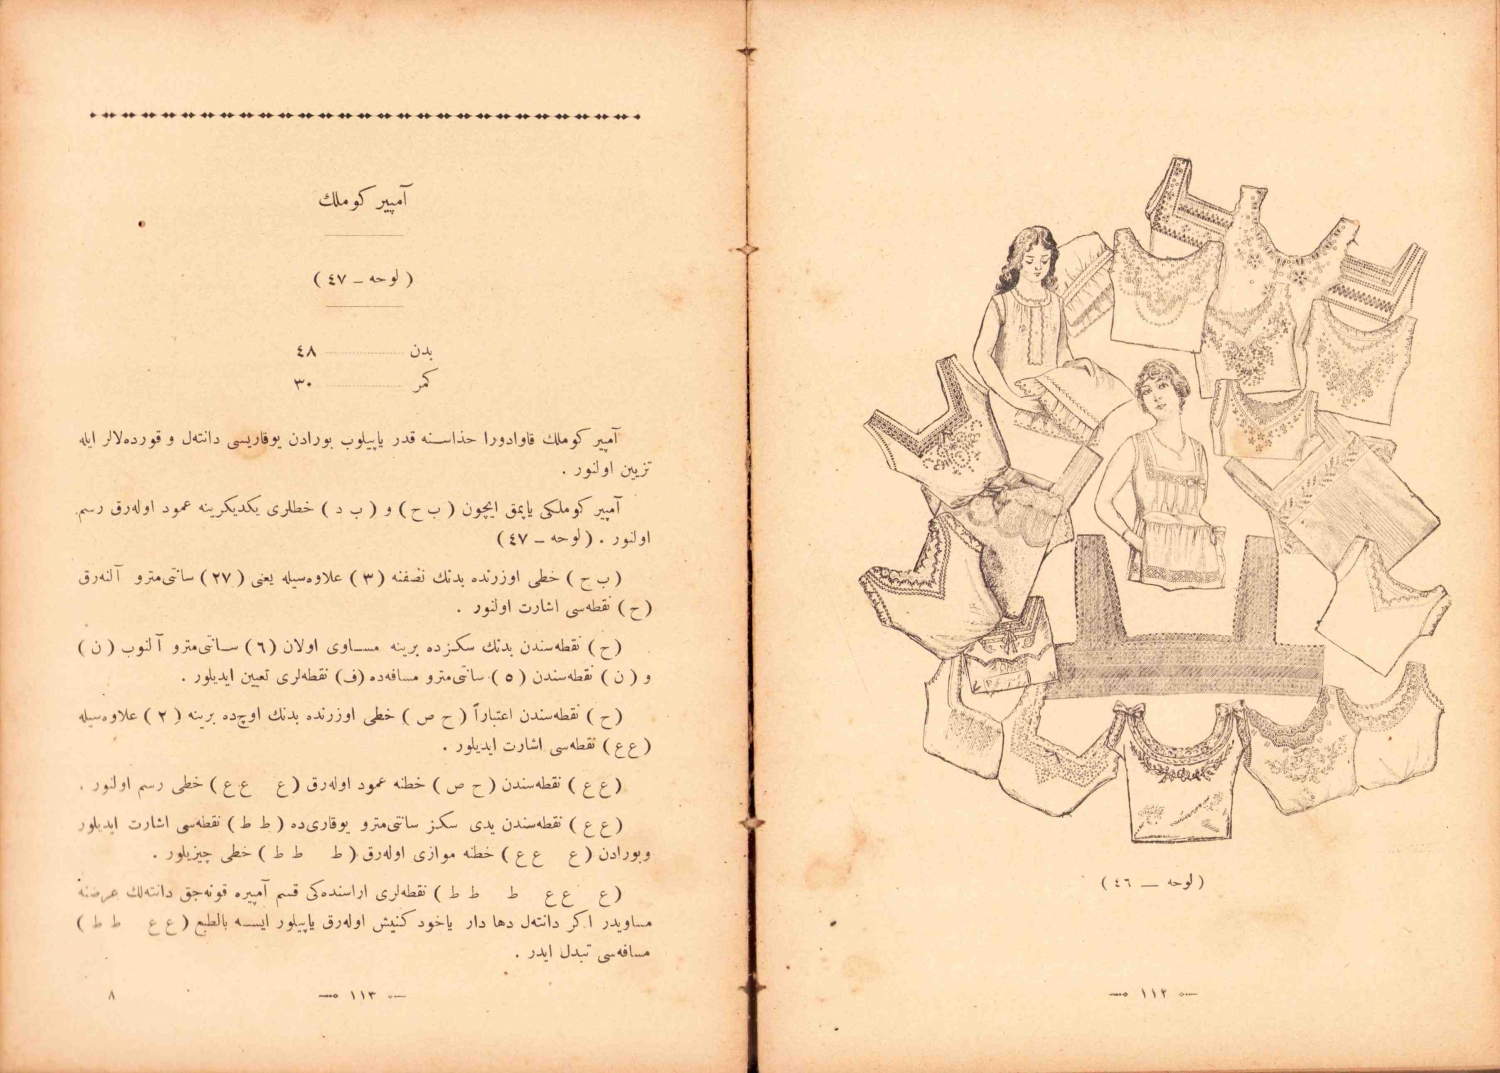 ( لوحه — ٤٦ )
— ١١٢ —
آمپير كوملك
( لوحه – ٤٧ )
بدن ........ ٤٨
كمر ........ ٣٠
آمپير كوملك قاوادورا حذاسنه قدر ياپيلوب بورادن يوقاريسى دانته‌ل و قورده‌لالر ايله
تزيين اولنور .
آمپير كوملكى ياپمق ايچون ( ب ح ) و ( ب د ) خطلرى يكديكرينه عمود اوله‌رق رسم
اولنور . ( لوحه – ٤٧ )
( ب ح ) خطى اوزرنده بدنك نصفنه ( ٣ ) علاوه‌سيله يعنى ( ٢٧ ) سانتى‌مترو آلنه‌رق
( ح ) نقطه‌سى اشارت اولنور .
( ح ) نقطه‌سندن بدنك سكزده برينه مساوى اولان ( ٦ ) سانتى‌مترو آلنوب ( ن )
و ( ن ) نقطه‌سندن ( ٥ ) سانتى‌مترو مسافه‌ده (ف) نقطه‌لرى تعيين ايديلور .
( ح ) نقطه‌سندن اعتباراً ( ح ص ) خطى اوزرنده بدنك اوچ‌ده برينه ( ٢ ) علاوه‌سيله
( ع ع ) نقطه‌سى اشارت ايديلور .
( ع ع ) نقطه‌سندن ( ح ص ) خطنه عمود اوله‌رق ( ع ع ع ) خطى رسم اولنور .
( ع ع ) نقطه‌سندن يدى سكز سانتى‌مترو يوقارى‌ده ( ط ط ) نقطه‌سى اشارت ايديلور
وبورادن ( ع ع ع ) خطنه موازى اوله‌رق ( ط ط ط ) خطى چيزيلور .
( ع ع ع ط ط ط ) نقطه‌لرى اراسنده‌كى قسم آمپيره قونه‌جق دانته‌لك عرضنه
مساويدر اكر دانته‌ل دها دار ياخود كنيش اوله‌رق ياپيلور ايسه بالطبع ( ع ع ط ط )
مسافه‌سى تبدل ايدر .
— ١١٣ —
٨